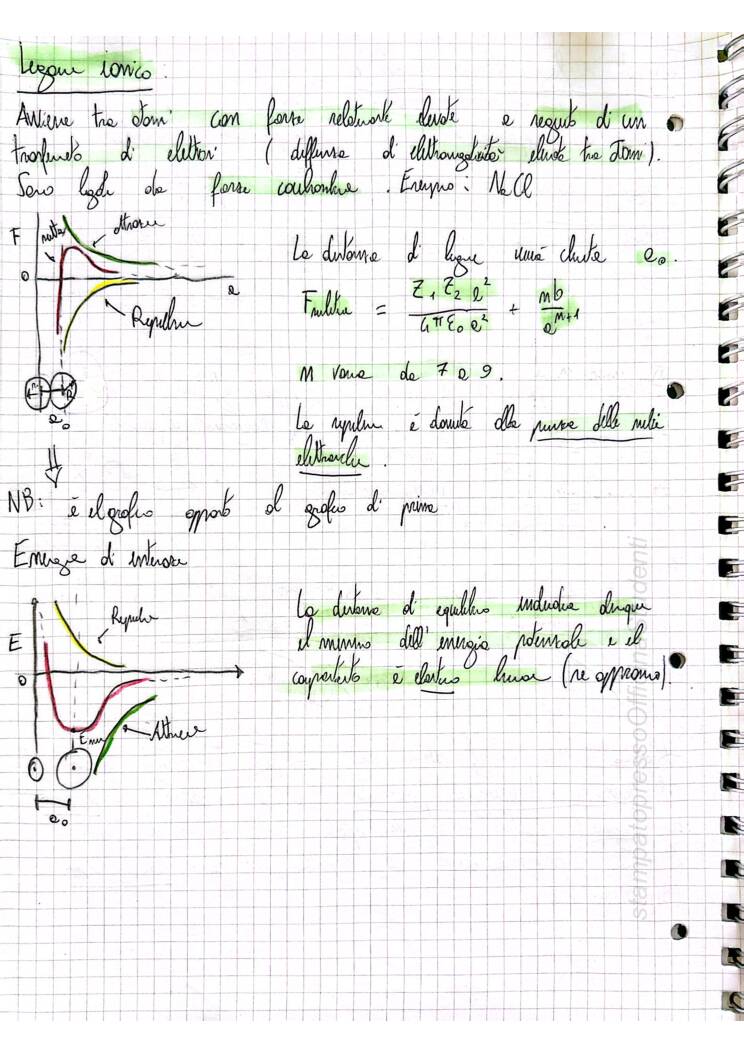 Legame ionico:
Avviene tra atomi con forze relativamente elevate a seguito di un
trasferimento di elettroni ( differenza di elettronegatività elevata tra atomi ).
Sono legate da forze coulombiane . Esempio : NaCl
F
netta
Attrazione
La distanza di legame verrà chiamata a₀ .
0
a
Repulsione
F risultante = Z₁ Z₂ e² / 4πε₀ a² + nb / aⁿ⁺¹
n varia da 7 a 9 .
a₀
La repulsione è dovuta alla presenza delle nubi
elettroniche .
NB: è il grafico opposto al grafico di prima
Energia di interazione
Repulsione
La distanza di equilibrio individua dunque
E
il minimo dell'energia potenziale e il
0
comportamento è elastico lineare (se approssimo).
E min
Attrazione
a₀
stampatopressoOfficin denti